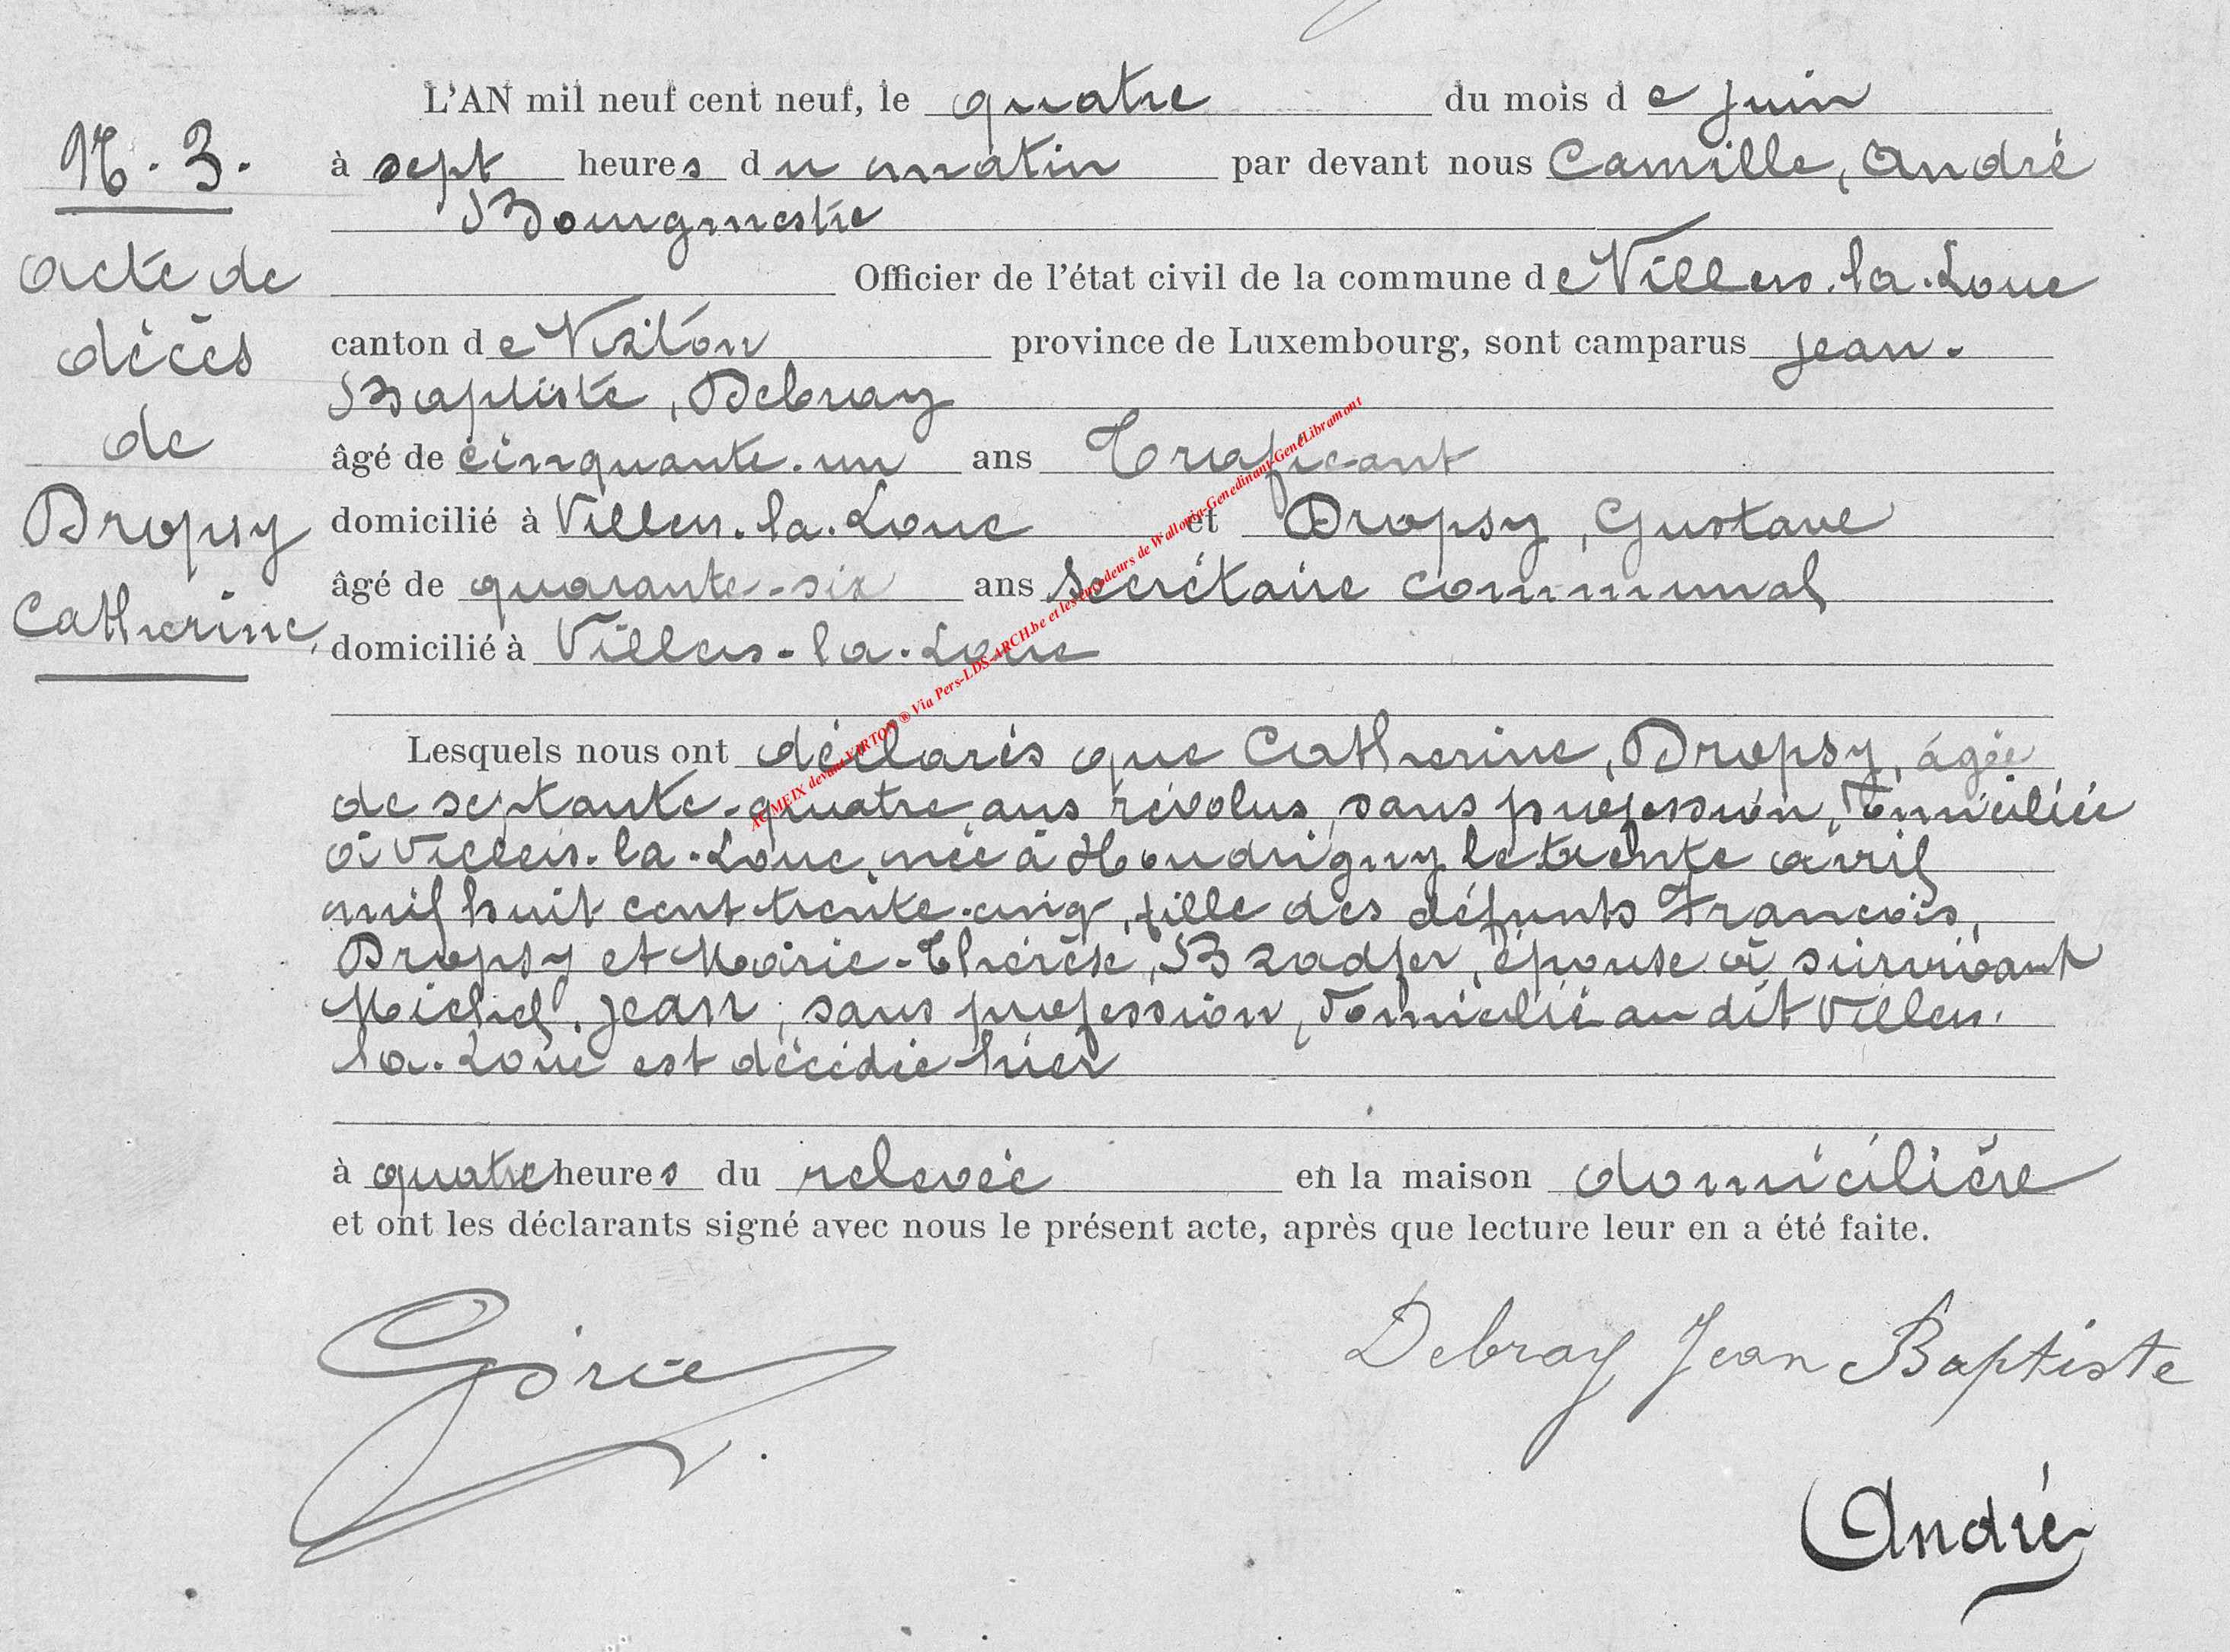 L'AN mil neuf cent neuf, le quatre du mois de juin
N. 3.
à sept heures du matin par devant nous Camille, André
Bourgmestre
acte de
Officier de l'état civil de la commune de Villers-la-Loue
décès
canton de Virton province de Luxembourg, sont camparus Jean-
Baptiste, Debray
de
âgé de cinquante-un ans Traficant
Dropsy
domicilié à Villers-la-Loue et Dropsy, Gustave
âgé de quarante-six ans Secrétaire communal
Catherine,
domicilié à Villers-la-Loue
AC MEIX devant VIRTON ® Via Pers-LDS-ARCH.be et les encodeurs de Wallonia-Genedinant-GenéLibramont
Lesquels nous ont déclarés que Catherine, Dropsy, âgée
de septante-quatre ans révolus, sans profession, domiciliée
à Villers-la-Loue, née à Houdrigny le trente avril
mil huit cent trente-cinq, fille des défunts François,
Dropsy et Marie-Thérèse, Bradfer, épouse à survivant
Michel, Jean, sans profession, domicilié au dit Villers-
la-Loue est décédée hier
à quatre heures du relevée en la maison domicilière
et ont les déclarants signé avec nous le présent acte, après que lecture leur en a été faite.
Debray Jean Baptiste
André